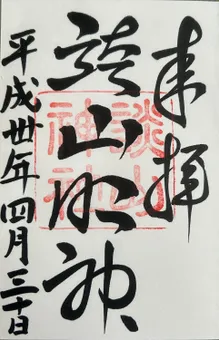 奉拝
談山明神
談山神社
平成卅年四月三十日